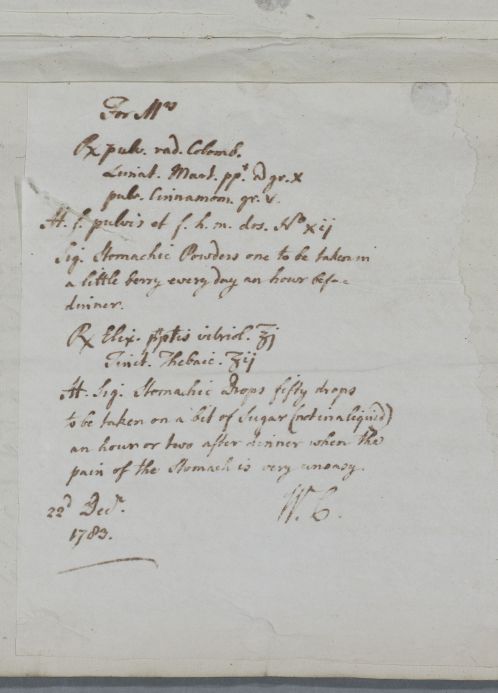 For Mrs
Rx pulv. rad. Colomb.
Limat. Mart. ppt. a gr. x
pulv. Cinnamom. gr. v.
M. f. pulvis et f. h. m. dos. No xij
Sig. Stomachic Powders one to be taken in
a little berry every day an hour befo=
dinner.
Rx Elix. vitriol. ℥j
Tinct. Thebaic. ℥ij
M. Sig. Stomachic Drops fifty drops
to be taken on a bit of Sugar (not in a liquid)
an hour or two after dinner when the
pain of the Stomach is very uneasy.
22d Decr.
W. C.
1783.